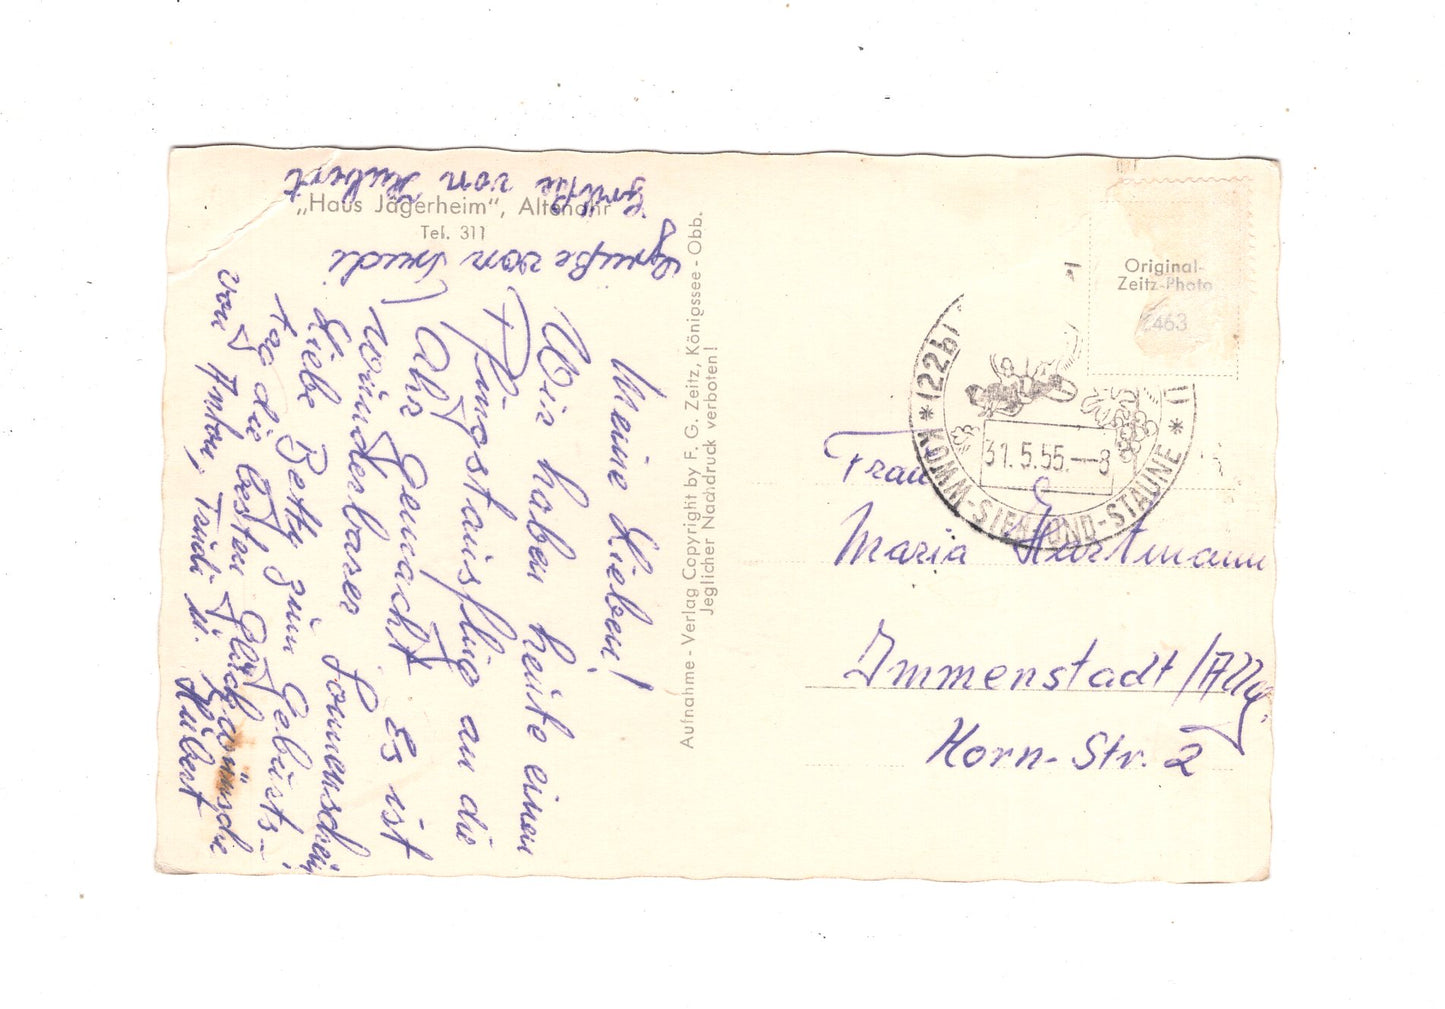 „Haus Jägerheim", Altenahr
Tel. 311
Grüße von Hubert
Grüße von Trudi
Meine Lieben!
Wir haben heute einen
Pfingstausflug an die
Ahr gemacht. Es ist
wunderbarer Sonnenschein.
Liebe Betty zum Geburts-
tag die besten Glückwünsche
von Anton, Trudi u. Hubert
Aufnahme - Verlag Copyright by F. G. Zeitz, Königssee - Obb.
Jeglicher Nachdruck verboten!
Original-
Zeitz-Photo
2463
(22b)
31.5.55.-8
* KOMM-SIEH-UND-STAUNE *
Frau
Maria Hartmann
Immenstadt/Allg.
Horn-Str. 2